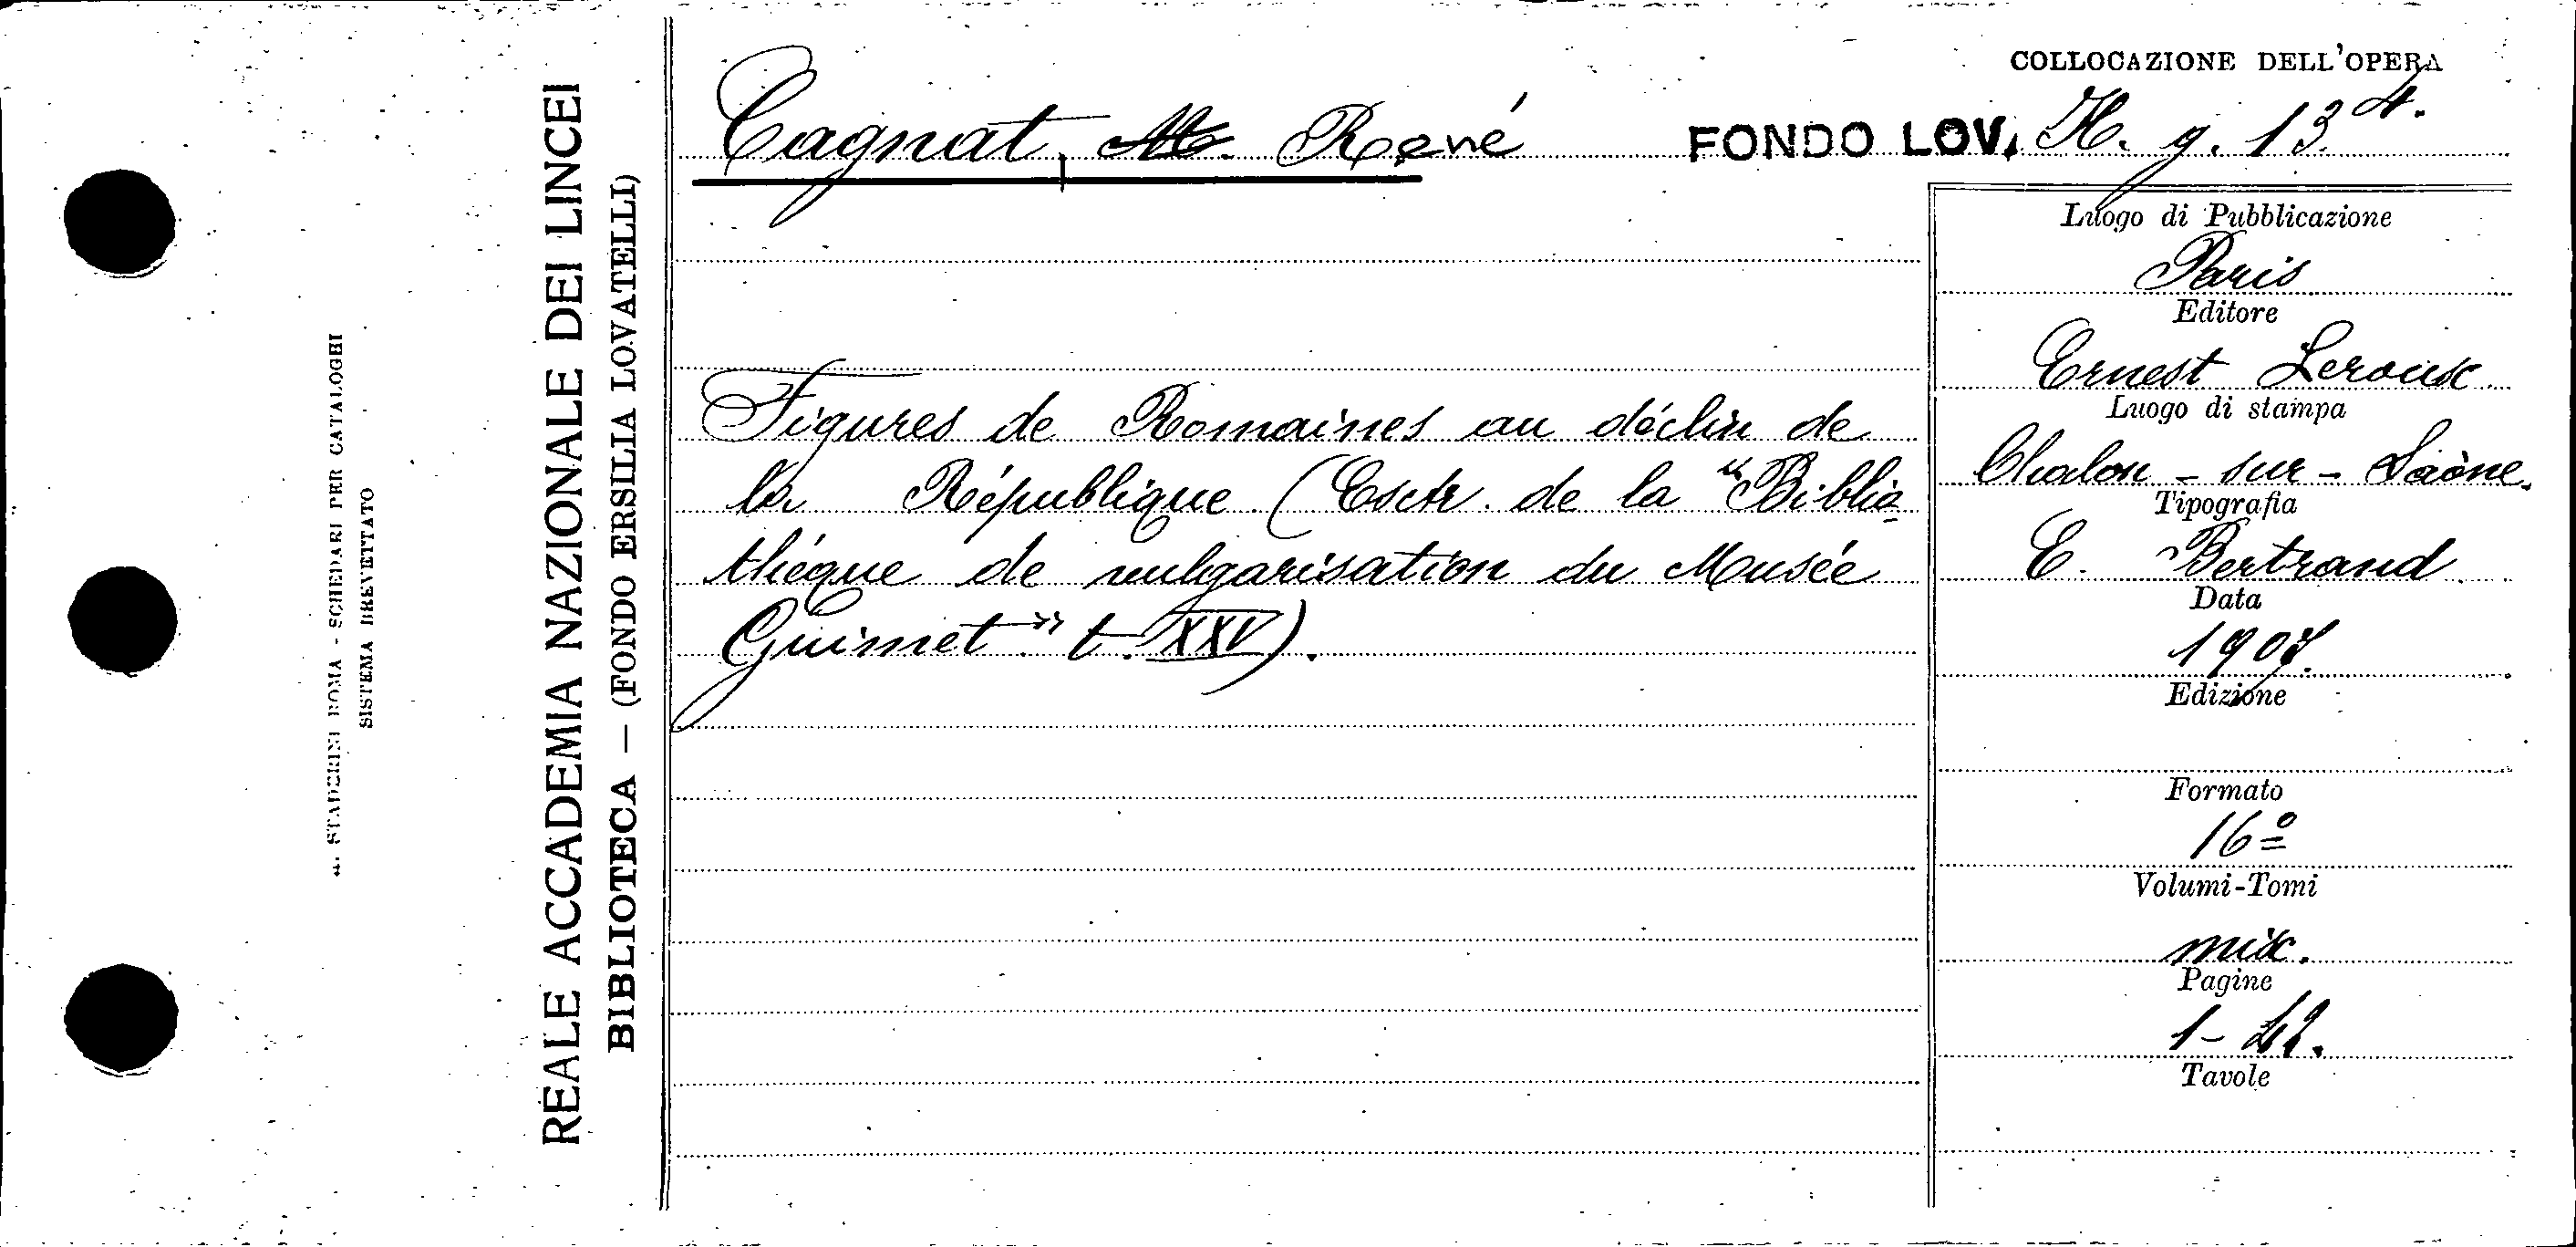 COLLOCAZIONE DELL'OPERA
Cagnat, M. René
FONDO LOV. H. g. 13 4.
Figures de Romaines au déclin de
la République (Extr. de la "Biblio-
thèque de vulgarisation du Musée
Guimet" t. XXV).
Luogo di Pubblicazione
Paris
Editore
Ernest Leroux
Luogo di stampa
Chalon-sur-Saône.
Tipografia
E. Bertrand
Data
1907.
Edizione
Formato
16º
Volumi-Tomi
mix.
Pagine
1-
Tavole
REALE ACCADEMIA NAZIONALE DEI LINCEI
BIBLIOTECA — (FONDO ERSILIA LOVATELLI)
STADERINI ROMA - SCHEDARI PER CATALOGHI
SISTEMA BREVETTATO